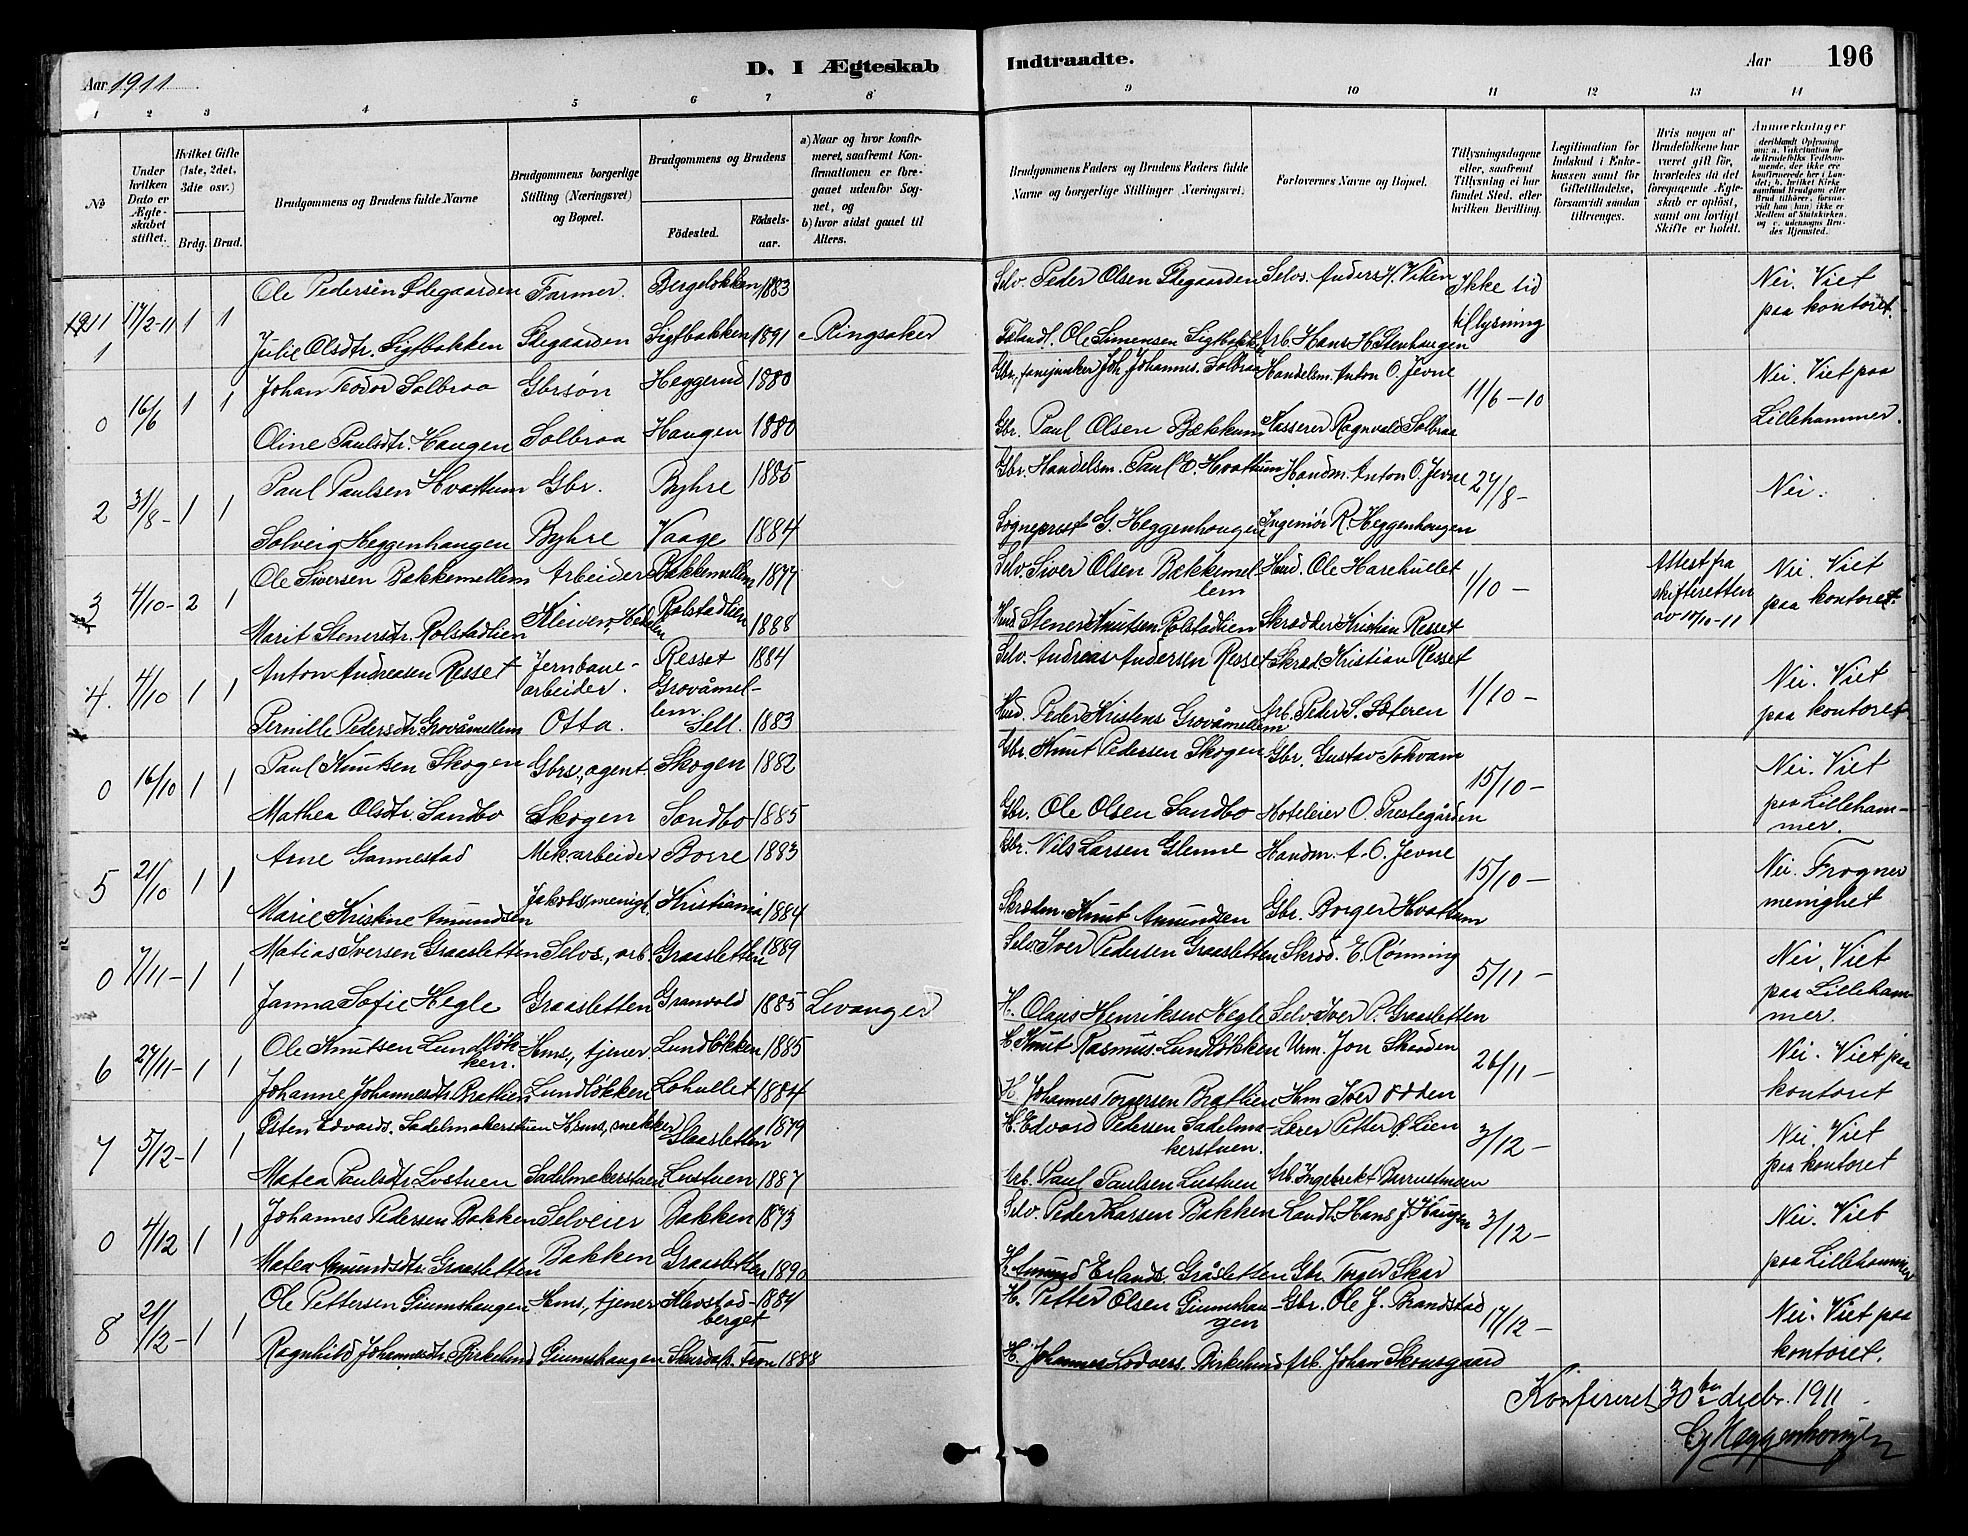 Aar 1911
D. I Ægteskab
Indtraadte.
Aar
196
1 2 3 4 5 6 7 8 9 10 11 12 13 14
No
Under hvilken Dato er Ægteskabet stiftet.
Hvilket Gifte (1ste, 2det, 3die osv.)
Brdg. Brud.
Brudgommens og Brudens fulde Navne
Brudgommens borgerlige Stilling (Næringsvei) og Bopæl.
Brudgommens og Brudens
Födested.
Födselsaar.
a) Naar og hvor konfirmeret, saafremt Konfirmationen er foregaaet udenfor Sognet, og
b) hvor sidst gaaet til Alters.
Brudgommens Faders og Brudens Faders fulde Navne og borgerlige Stillinger (Næringsvei).
Forlovernes Navne og Bopæl.
Tillysningsdagene eller, saafremt Tillysning ei har fundet Sted, efter hvilken Bevilling.
Legitimation for Indskud i Enkekassen samt for Giftetilladelse, forsaavidt saadan tiltrænges.
Hvis nogen af Brudefolkene har været gift för, hvorledes da det foregaaende Ægteskab er oplöst, samt om lovligt Skifte er holdt.
Anmærkninger
1911 17/2-11 1 1 Ole Pedersen Ødegaarden Farmer. Bergeløkken 1883 Selv. Peder Olsen Ødegaarden Selvs. Anders H. Viken Ikke tid Nei. Viet
1 Julie Olsdtr. Sigtbakken Ødegaarden Sigtbakken 1891 Ringsaker Ole Simensen Sigtbakk. Arb. Hans H. Stenhaugen tillysning paa kontoret.
0 16/6 1 1 Johan Teodor Solbraa Gbrsøn Heggerud 1880 Gbr., fanejunker Joh. Johannes. Solbraa Handelsm. Anton O. Jevne 11/6-10 Nei. Viet paa
Oline Paulsdtr. Haugen Solbraa Haugen 1880 Gbr. Paul Olsen Bækkum Kasserer Ragnvald Solbraa Lillehammer.
2 31/8- 1 1 Paul Paulsen Hvattum Gbr. Byhre 1885 Gbr. Handelsm. Paul E. Hvattum Handm. Anton O. Jevne 27/8- Nei.
Solveig Heggenhaugen Byhre Vaage 1884 Sogneprest G. Heggenhougen Ingeniør R. Heggenhougen
3 4/10- 2 1 Ole Siversen Bakkemellem Arbeider Bakkemellem 1877 Selv. Siver Olsen Bækkemellem Husd. Ole Harehullet 1/10- Attest fra skifteretten av 10/10-11 Nei. Viet
Marit Stenersdtr. Rolstadlien Kleiven, Hedalen Rolstadlien 1888 Husd. Stener Knutsen Rolstadlien Skrædder Kristian Resset paa kontoret.
4. 4/10 1 1 Anton Andreasen Resset Jernbanearbeider. Resset 1884 Selv. Andreas Andersen Resset Skræd. Kristian Resset 1/10- Nei. Viet
Pernille Pedersdtr. Grovåmellem Otta. Grovåmellem. Sell. 1883 Husd. Peder Kristens. Grovåmellem Arb. Peder S. Sæteren paa kontoret
0 16/10 1 1 Paul Knutsen Skogen Gbrs., agent. Skogen 1882 Gbr. Knut Pedersen Skogen Gbr. Gustav Tokvam 15/10- Nei. Viet
Mathea Olsdtr. Sandbo Skogen Sandbo 1885 Gbr. Ole Olsen Sandbo Hoteleier O. Prestegården paa Lillehammer.
5 21/10 1 1 Arne Gannestad Mek arbeider Borre 1883 Gbr. Nils Larsen Glenne Handm. A. O. Jevne 15/10- Nei. Frogner
Marie Kristine Amundsen Jakobs menigh. Kristiania 1884 Skræddm. Knut Amundsen Gbr. Borger Hvattum menighet
0 7/11- 1 1 Matias Iversen Graasletten Selvs., arb. Graasletten 1889 Selv. Iver Pedersen Graasletten Skræd. E. Rønning 5/11- Nei. Viet
Janna Sofie Hegle Graasletten Granvold 1885 Levanger H. Olaus Henriksen Hegle Selv. Iver P. Graasletten paa Lillehammer.
6 27/11- 1 1 Ole Knutsen Lundløkken. Hms., tjener Lundløkken 1885 H. Knut Rasmus. Lundløkken Urm. Jon Skarden 26/11- Nei. Viet paa
Johanne Johannesdtr. Brætlien Lundløkken Lohullet 1884 H. Johannes Torgersen Brætlien Hm Iver Odden kontoret
7 5/12- 1 1 Østen Edvards. Sadelmakerstuen Hsms., snekker Graasletten 1879 H. Edvard Pedersen Sadelmakerstuen. Lærer Petter P. Lien 3/12- Nei. Viet
Matea Paulsdtr. Lostuen Sadelmakerstuen Lustuen 1887 Arb. Paul Paulsen Lustuen Arb. Ingebrekt paa kontoret
0 4/12 1 1 Johannes Pedersen Bakken Selveier Bakken 1873 Selv. Peder Larsen Bakken Landh. Hans J. Haugen 3/12- Nei. Viet
Matea Amundsdtr. Graasletten Bakken Graasletten 1890 H. Amund Erlands. Gråsletten Gbr. Torger Skar paa Lillehammer
8 21/12- 1 1 Ole Pettersen Giumshaugen Hms., tjener Klevstadberget 1884 H. Petter Olsen Giumshaugen Gbr. Ole J. Brandstad 17/12- Nei. Viet paa
Ragnhild Johannesdtr. Birkelund Giumshaugen Skurdals. Fron 1888 H. Johannes Lodvers. Birkelund Arb. Johan Skonsgaard kontoret.
Konfireret 30te decbr. 1911
G Heggenhougen